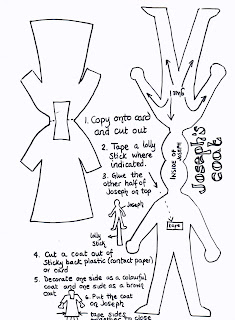 1. Copy onto card
and cut out
2. Tape a lolly
Stick where
indicated.
3. Glue the
other half of
Joseph on top
Joseph
lolly
stick
tape
Inside of
Joseph
Joseph's
coat
tape
4. Cut a coat out of
Sticky back plastic (contact paper)
or card
5. Decorate one side as a colourful
coat and one side as a brown
coat
6. Put the coat
on Joseph
tape sides
together to close